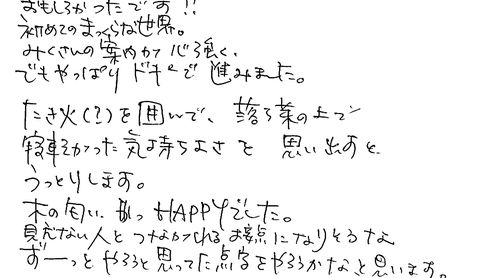 おもしろかったです!!
初めてのまっくらな世界。
みくさんの案内が心強く、
でもやっぱりドキドキで進みました。
たき火(?)を囲んで、落ち葉の上で
寝転がった気持ちよさを思い出すと
うっとりします。
木の匂い HAPPYでした。
見えない人とつながれる接点になりそうな
ずーっとやろうと思ってた点字をやろうかなと思います。